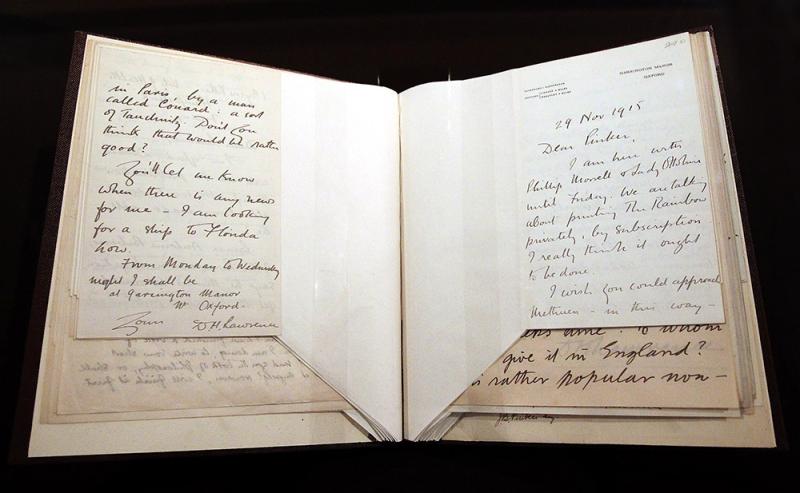 in Paris, by a man
called Conard: a sort
of Tauchnitz. Don't you
think that would be rather
good?
You'll let me know
when there is any news
for me – I am looking
for a ship to Florida
now.
From Monday to Wednesday
night I shall be
at Garsington Manor
Nr Oxford –
Yours D H Lawrence
GARSINGTON MANOR
OXFORD
29 Nov 1915
Dear Pinker,
I am here with
Phillip Morrell & Lady Ottoline
until Friday. We are talking
about printing The Rainbow
privately, by subscription
I really think it ought
to be done.
I wish you could approach
Methuen – in this way –
to whom
give it in England?
rather popular non–